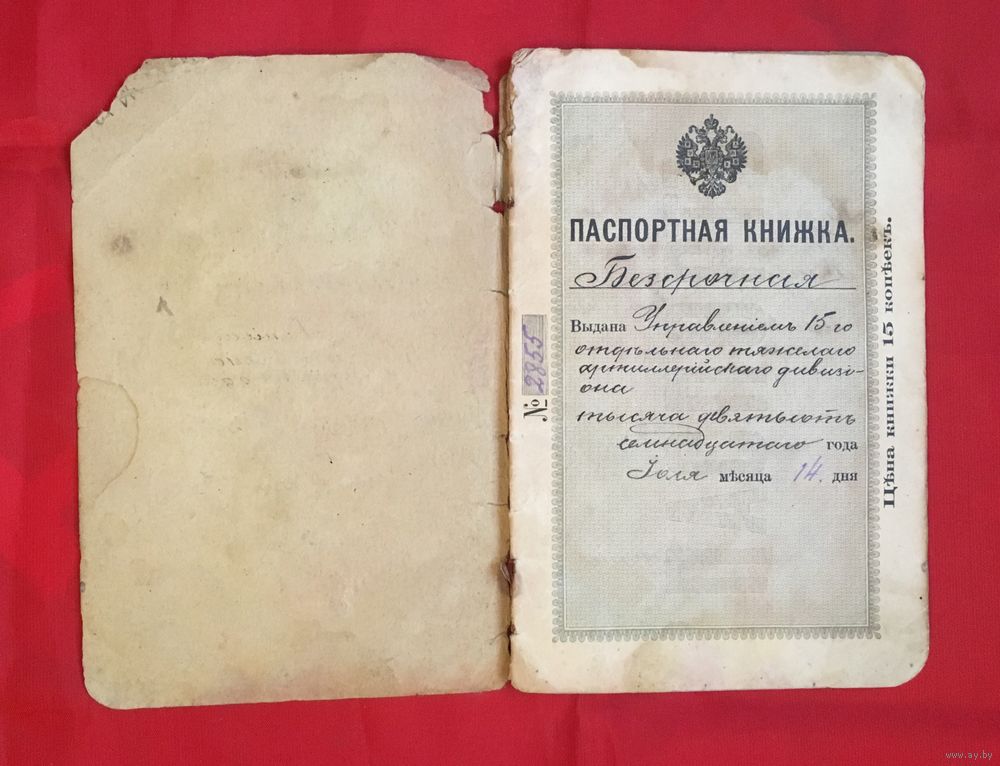 ПАСПОРТНАЯ КНИЖКА.
Безсрочная
Выдана Управленіемъ 15-го
отдѣльнаго тяжелаго
артиллерійскаго дивизі-
она
тысяча девятьсотъ
семнадцатаго года
Іюля мѣсяца 14 дня
№ 2855
Цѣна книжки 15 копѣекъ.
www.ay.by